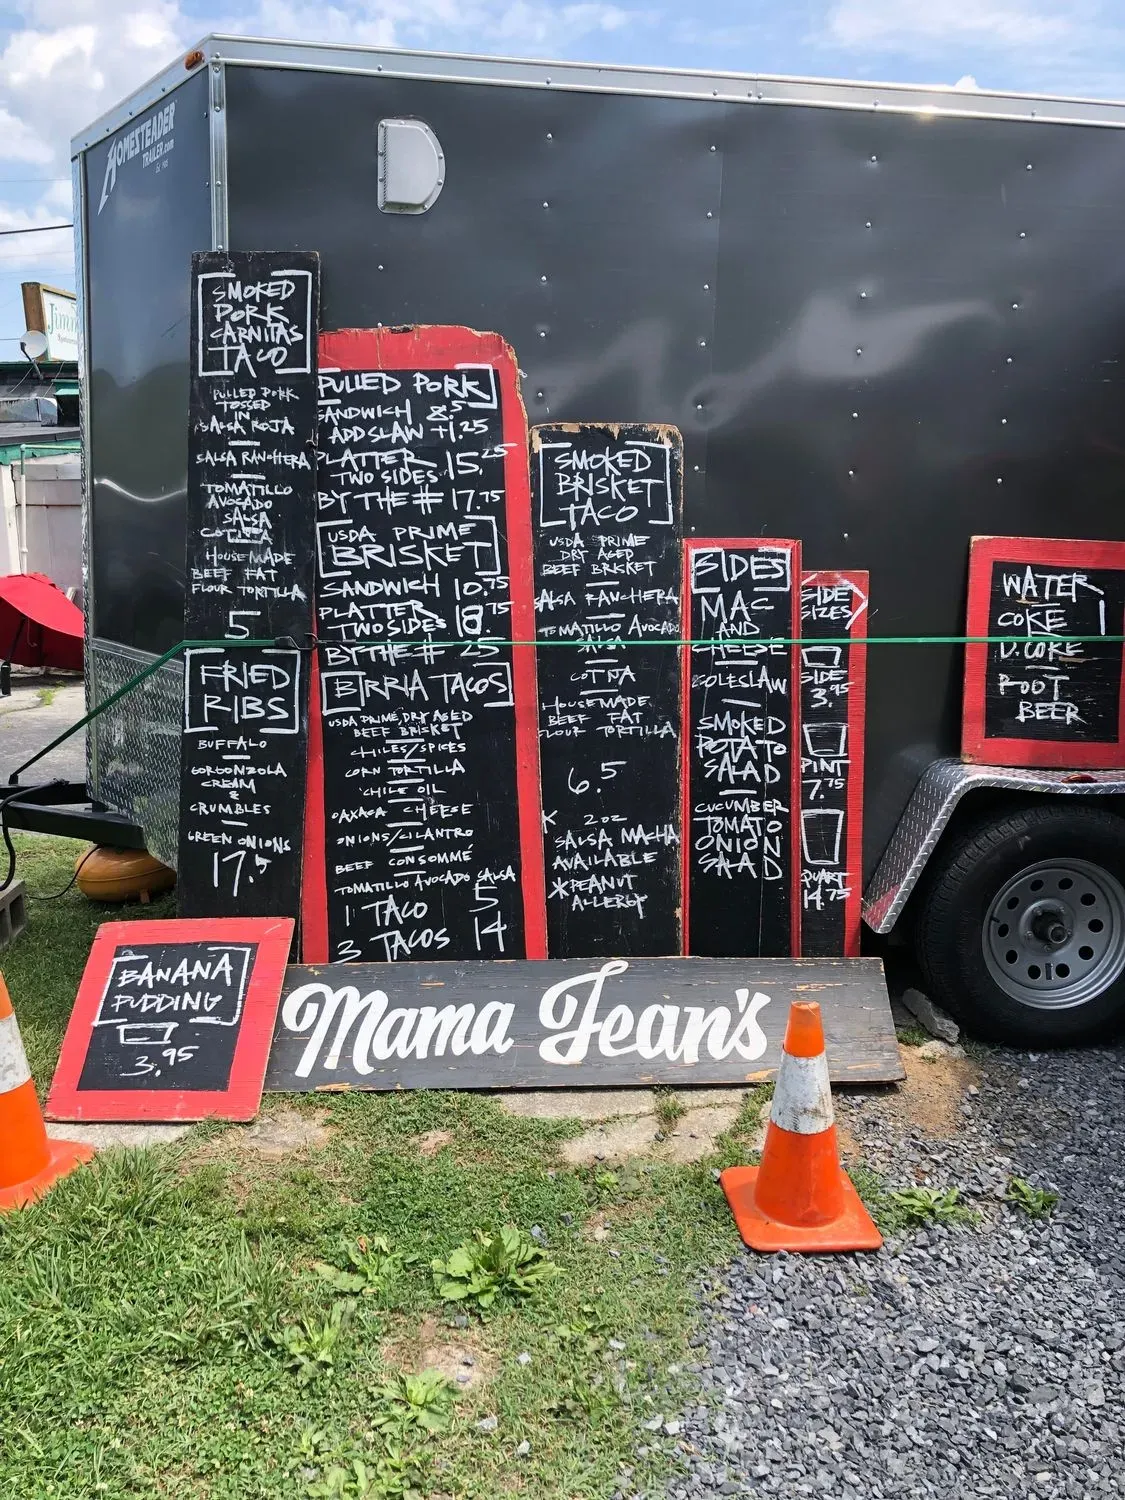 HOMESTEADER
TRAILER.com
Jimm
SMOKED
PORK
CARNITAS
TACO
PULLED PORK
TOSSED
IN
SALSA ROJA
SALSA RANCHERA
TOMATILLO
AVOCADO
SALSA
COTIJA
HOUSEMADE
BEEF FAT
FLOUR TORTILLA
5
FRIED
RIBS
BUFFALO
GORGONZOLA
CREAM
&
CRUMBLES
GREEN ONIONS
17.5
PULLED PORK
SANDWICH 8.5
ADD SLAW +1.25
PLATTER 15.25
TWO SIDES
BY THE # 17.75
USDA PRIME
BRISKET
SANDWICH 10.75
PLATTER 18.75
TWO SIDES
BY THE # 25
BIRRIA TACOS
USDA PRIME, DRY AGED
BEEF BRISKET
CHILES/SPICES
CORN TORTILLA
CHILE OIL
OAXACA CHEESE
ONIONS/CILANTRO
BEEF CONSOMMÉ
TOMATILLO AVOCADO SALSA
1 TACO 5
3 TACOS 14
SMOKED
BRISKET
TACO
USDA PRIME
DRY AGED
BEEF BRISKET
SALSA RANCHERA
TOMATILLO AVOCADO
SALSA
HOUSEMADE
BEEF FAT
FLOUR TORTILLA
6.5
2oz
SALSA MACHA
AVAILABLE
*PEANUT
ALLERGY
SIDES
MAC
AND
CHEESE
COLESLAW
SMOKED
POTATO
SALAD
CUCUMBER
TOMATO
ONION
SALAD
SIDE
SIZES
SIDE
3.95
PINT
7.75
QUART
14.75
WATER
COKE 1
D.COKE
ROOT
BEER
BANANA
PUDDING
3.95
Mama Jean's